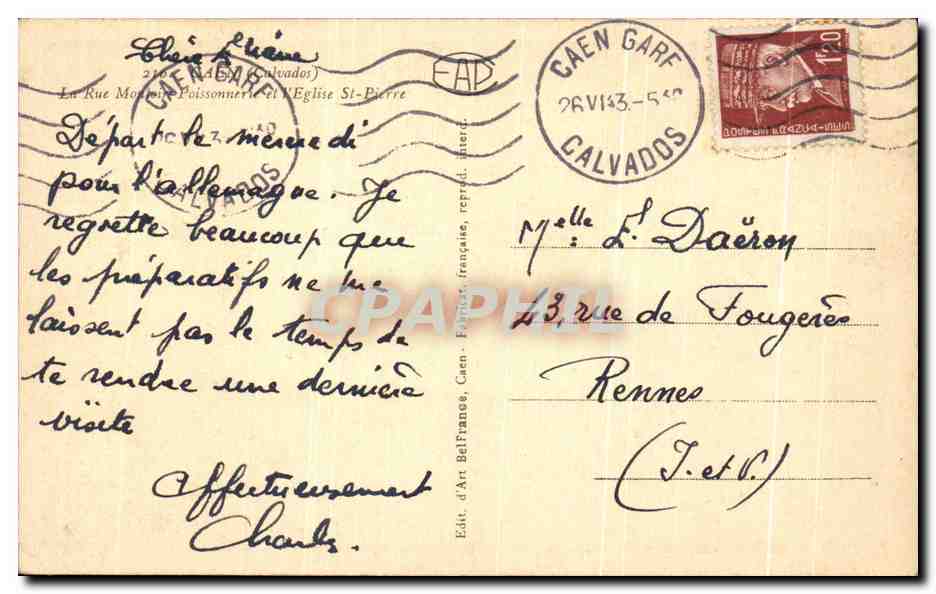 Chère
210. CAEN (Calvados)
La Rue Montoir-Poissonnerie et l'Eglise St-Pierre
Départ le mercredi
pour l'allemagne. Je
regrette beaucoup que
les préparatifs ne me
laissent pas le temps de
te rendre une dernière
visite
Affectueusement
Charles.
CAEN GARE
CALVADOS
Edit. d'Art BelFrance, Caen - Fabricat. française, reprod. interd.
CAEN GARE
26 VI 43
CALVADOS
1F20
POSTES FRANÇAISES
Melle E. Daëron
43, rue de Fougères
Rennes
(I. et V.)
CPAPHIL